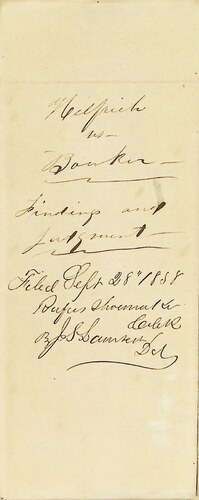 Helfrich
vs
Bowker
Findings and
judgment
Filed Sept 28th 1858
Rufus Shoemaker
Clerk
By J S Lambert
Dct